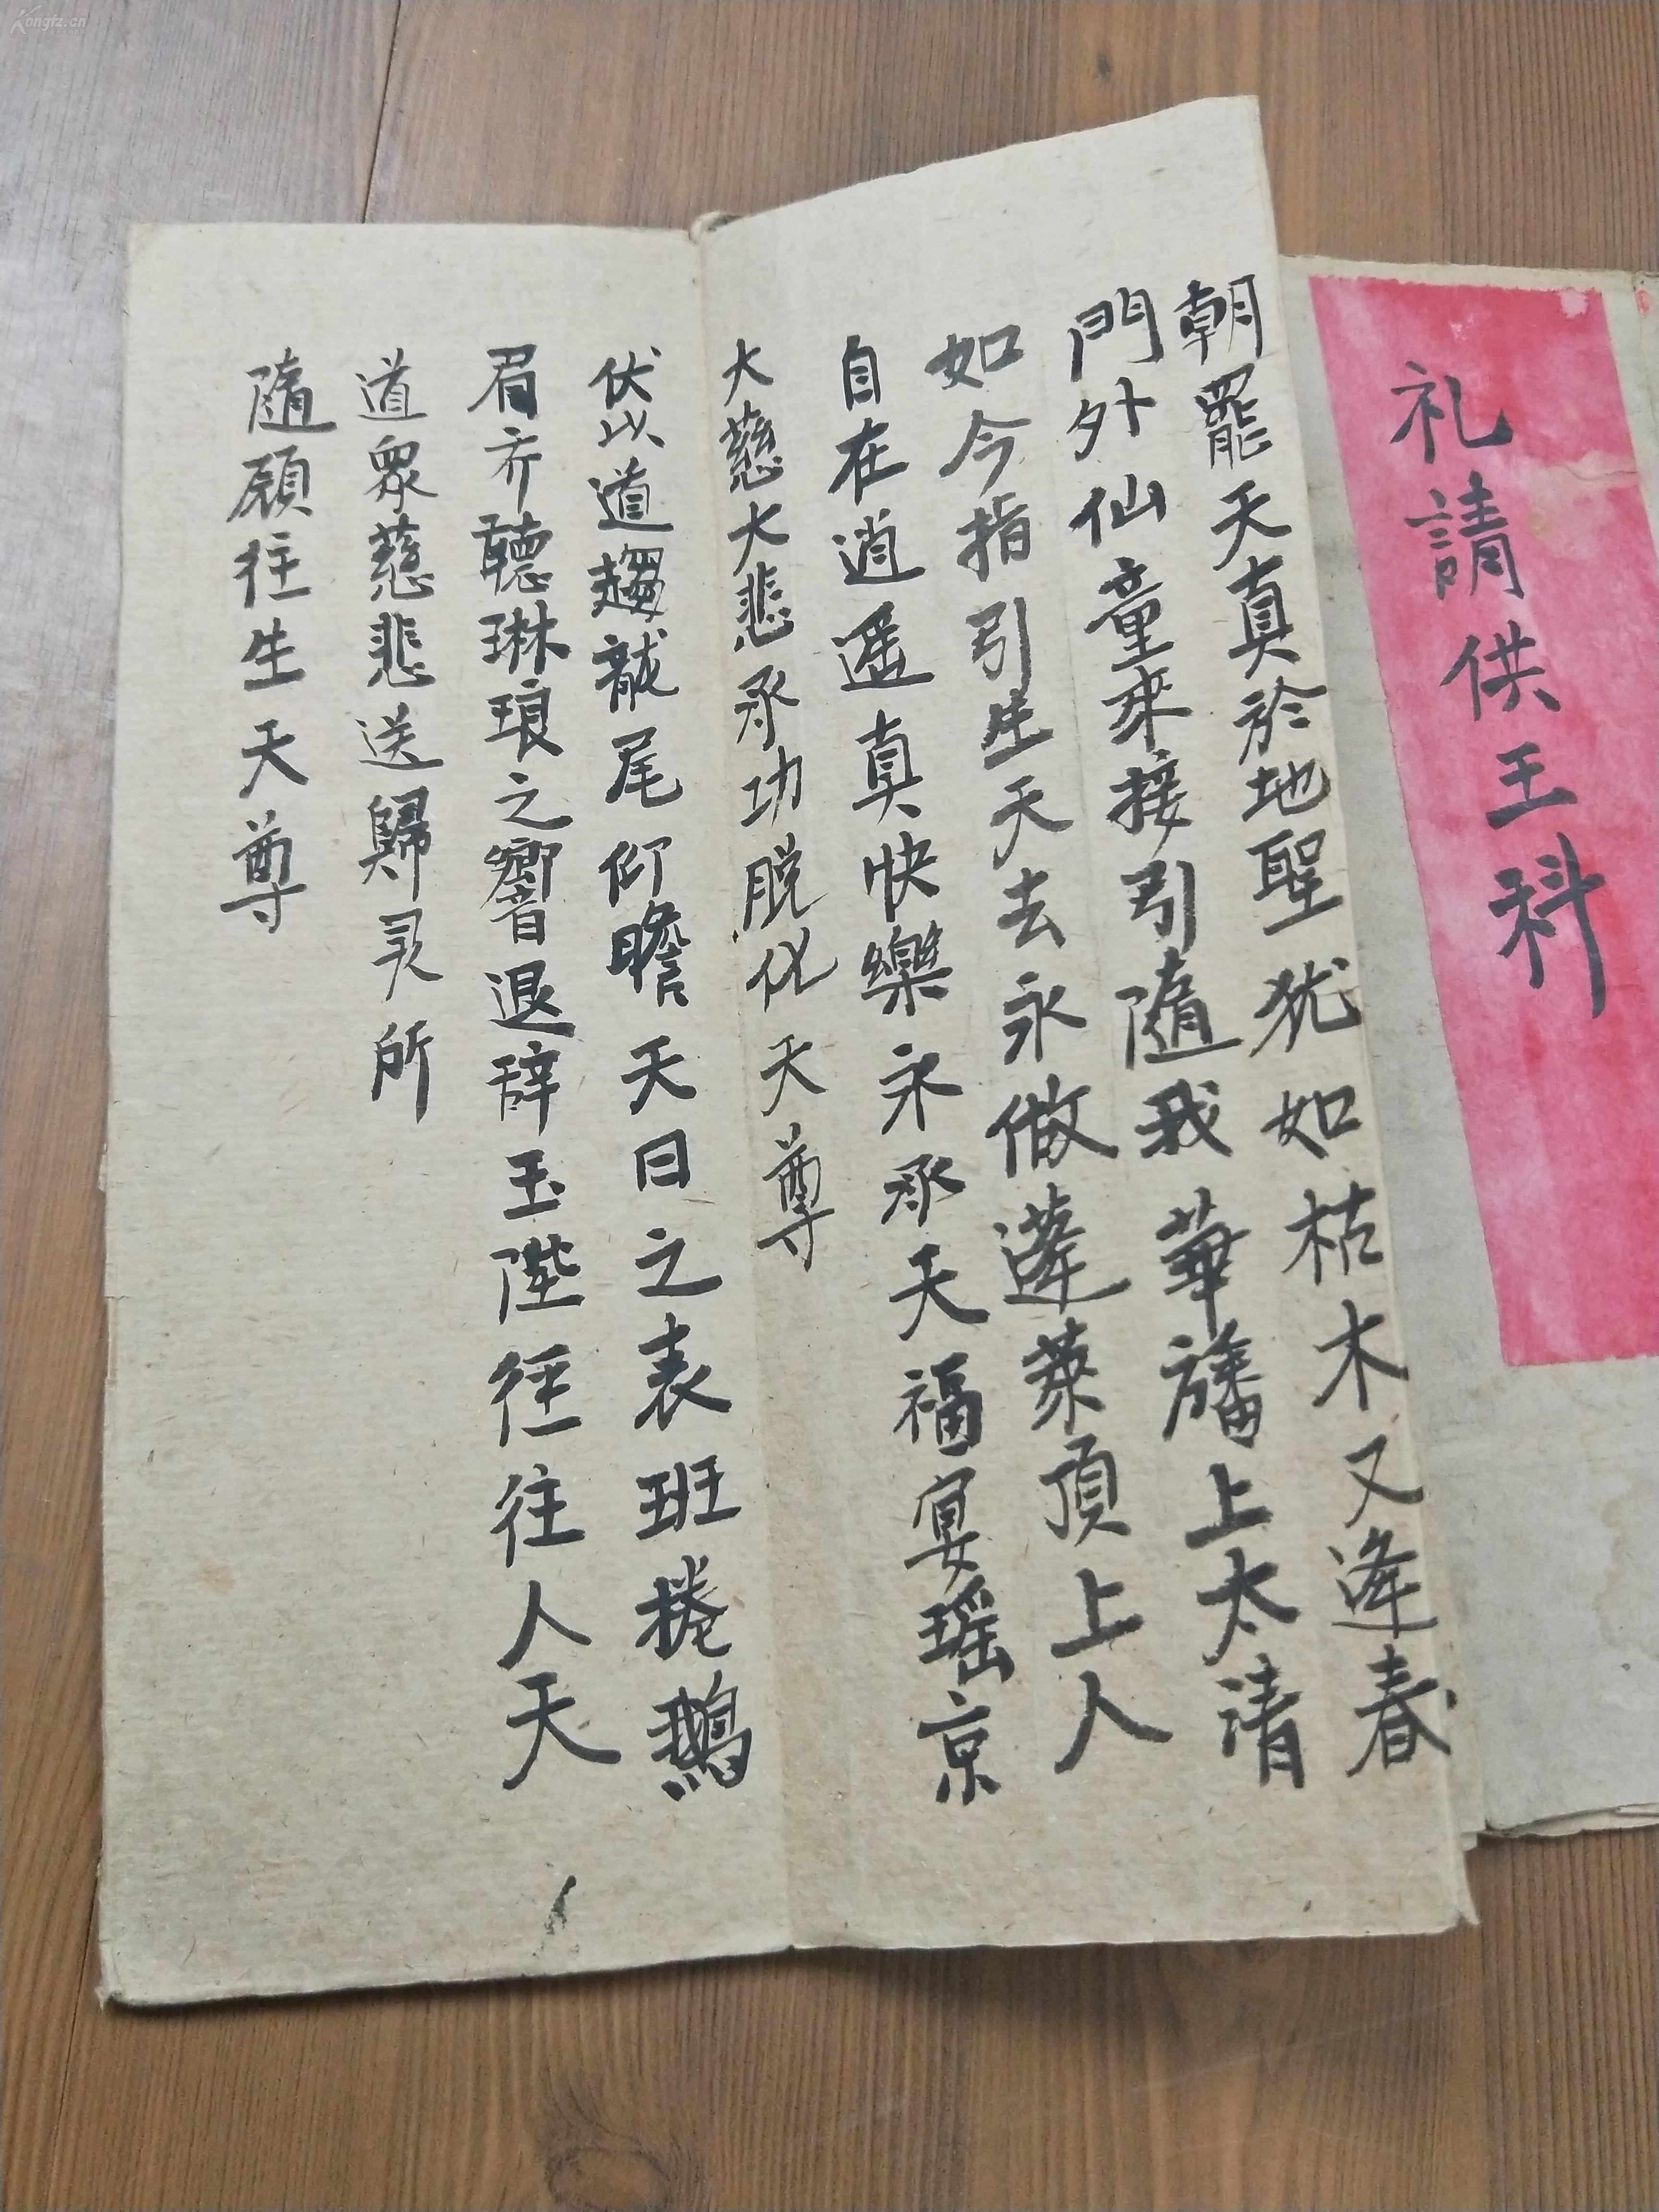 礼請供王科
朝罷天真於地聖犹如枯木又逢春
門外仙童來接引隨我華旛上太清
如今指引生天去永做蓬萊頂上人
自在逍遥真快樂永承天福宴瑶京
大慈大悲承功脱化天尊
伏以道趨龍尾仰瞻天日之表班捲鵝
眉齐聽琳琅之響退辞玉陛徑往人天
道眾慈悲送歸灵所
隨願往生天尊
Kongfz.cn